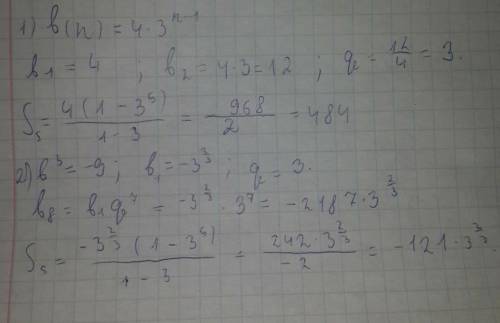 1) b(n) = 4·3^(n-1)
b₁ = 4 ; b₂ = 4·3 = 12 ; q = 12/4 = 3.
S₅ = 4(1 - 3⁵)/(1 - 3) = 968/2 = 484
2) b³ = -9 ; b₁ = -3^(2/3) ; q = 3.
b₈ = b₁q⁷ = -3^(2/3) · 3⁷ = -2187·3^(2/3)
S₅ = -3^(2/3) (1 - 3⁵)/(1 - 3) = 242·3^(2/3)/(-2) = -121·3^(2/3)